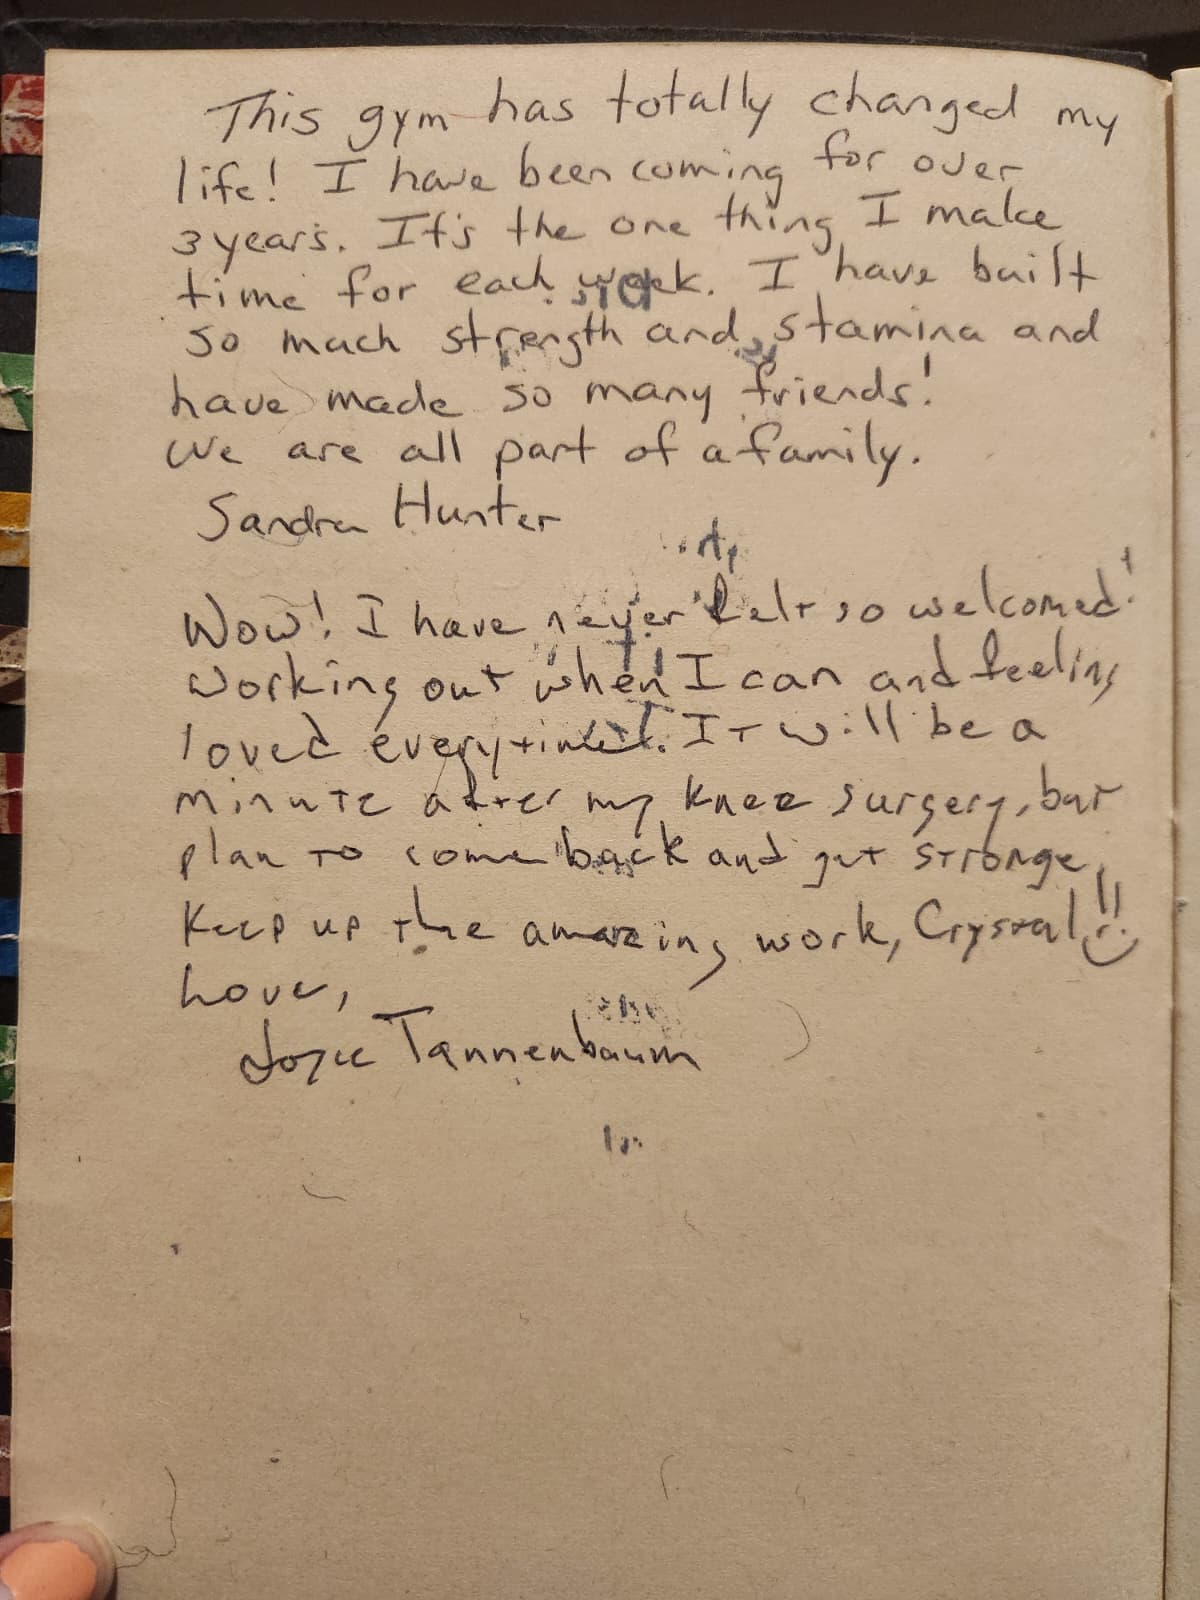 This gym has totally changed my
life! I have been coming for over
3 years. It's the one thing I make
time for each week. I have built
so much strength and stamina and
have made so many friends!
We are all part of a family.
Sandra Hunter
Wow! I have never felt so welcomed!
Working out when I can and feeling
loved everytime!. It will be a
minute after my knee surgery, but
plan to come back and get stronge,
Keep up the amazing work, Crystal!!
Love,
Tannenbaum